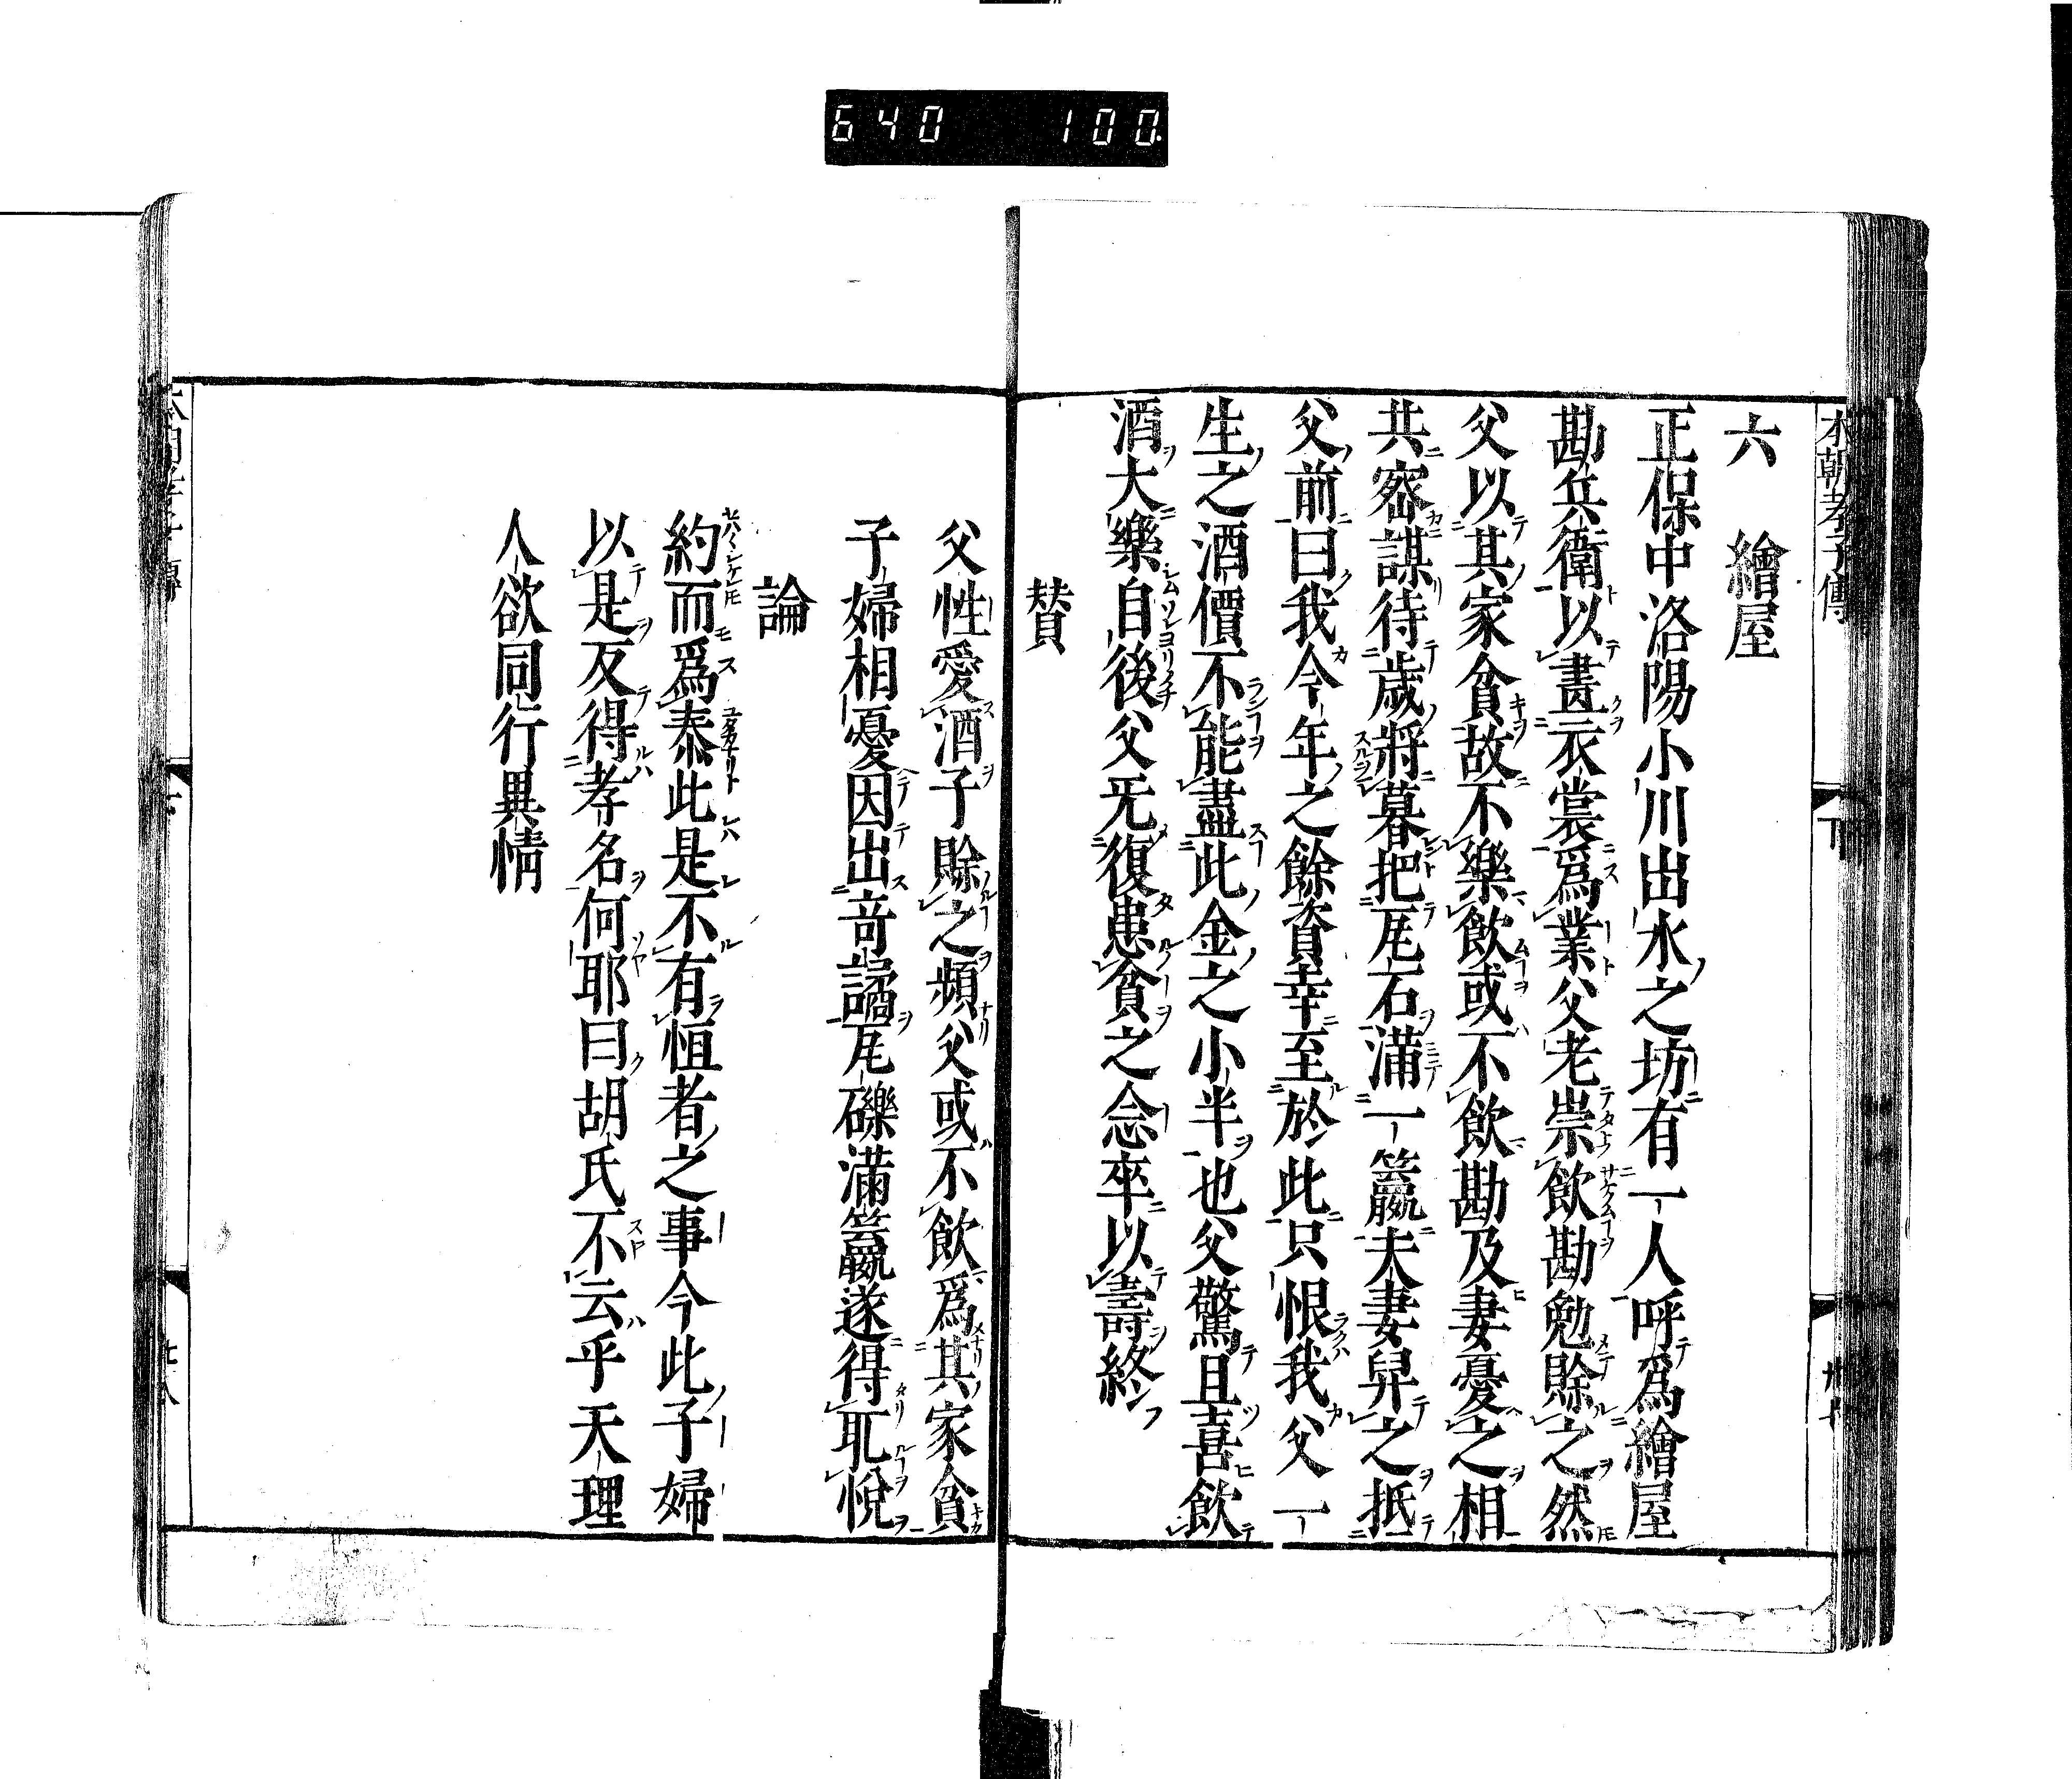 640 100
本朝孝子傳
下
六 繪屋
正保中洛陽小川出水之坊有一人呼爲繪屋
勘兵衛以畫衣裳爲業父老崇飲勘勉賒之然
父以其家貧故不樂飲或不飲勘及妻憂之相
共密謀待歲將暮把瓦石滿一籯夫妻舁之抵
父前曰我今年之餘資幸至於此只恨我父一
生之酒價不能盡此金之小半也父驚且喜飲
酒大樂自後父无復患貧之念卒以壽終
贊
父性愛酒子賒之頻父或不飲爲其家貧
子婦相憂因出奇譎瓦礫滿籯遂得耴悅
論
約而爲泰此是不有恒者之事今此子婦
以是反得孝名何耶曰胡氏不云乎天理
人欲同行異情